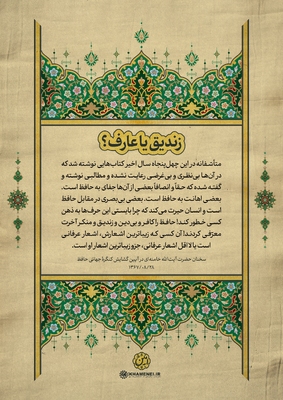 زندیق یا عارف؟
متأسفانه در این چهل‌پنجاه سال اخیر کتاب‌هایی نوشته شد که
در آن‌ها بی‌نظری و بی‌غرضی رعایت نشده و مطالبی نوشته و
گفته شده که حقاً و انصافاً بعضی از آن‌ها جفای به حافظ است.
بعضی اهانت به حافظ است. بعضی بی‌بصری در مقابل حافظ
است و انسان حیرت می‌کند که چرا بایستی این حرف‌ها به ذهن
کسی خطور کند! حافظ را کافر و بی‌دین و زندیق و منکر آخرت
معرفی کردند! آن کسی که زیباترین اشعارش، اشعار عرفانی
است یا لااقل اشعار عرفانی، جزو زیباترین اشعار او است.
سخنان حضرت آیت‌الله خامنه‌ای در آیین گشایش کنگره‌ٔ جهانی حافظ
۱۳۶۷/۰۸/۲۸
KHAMENEI.IR